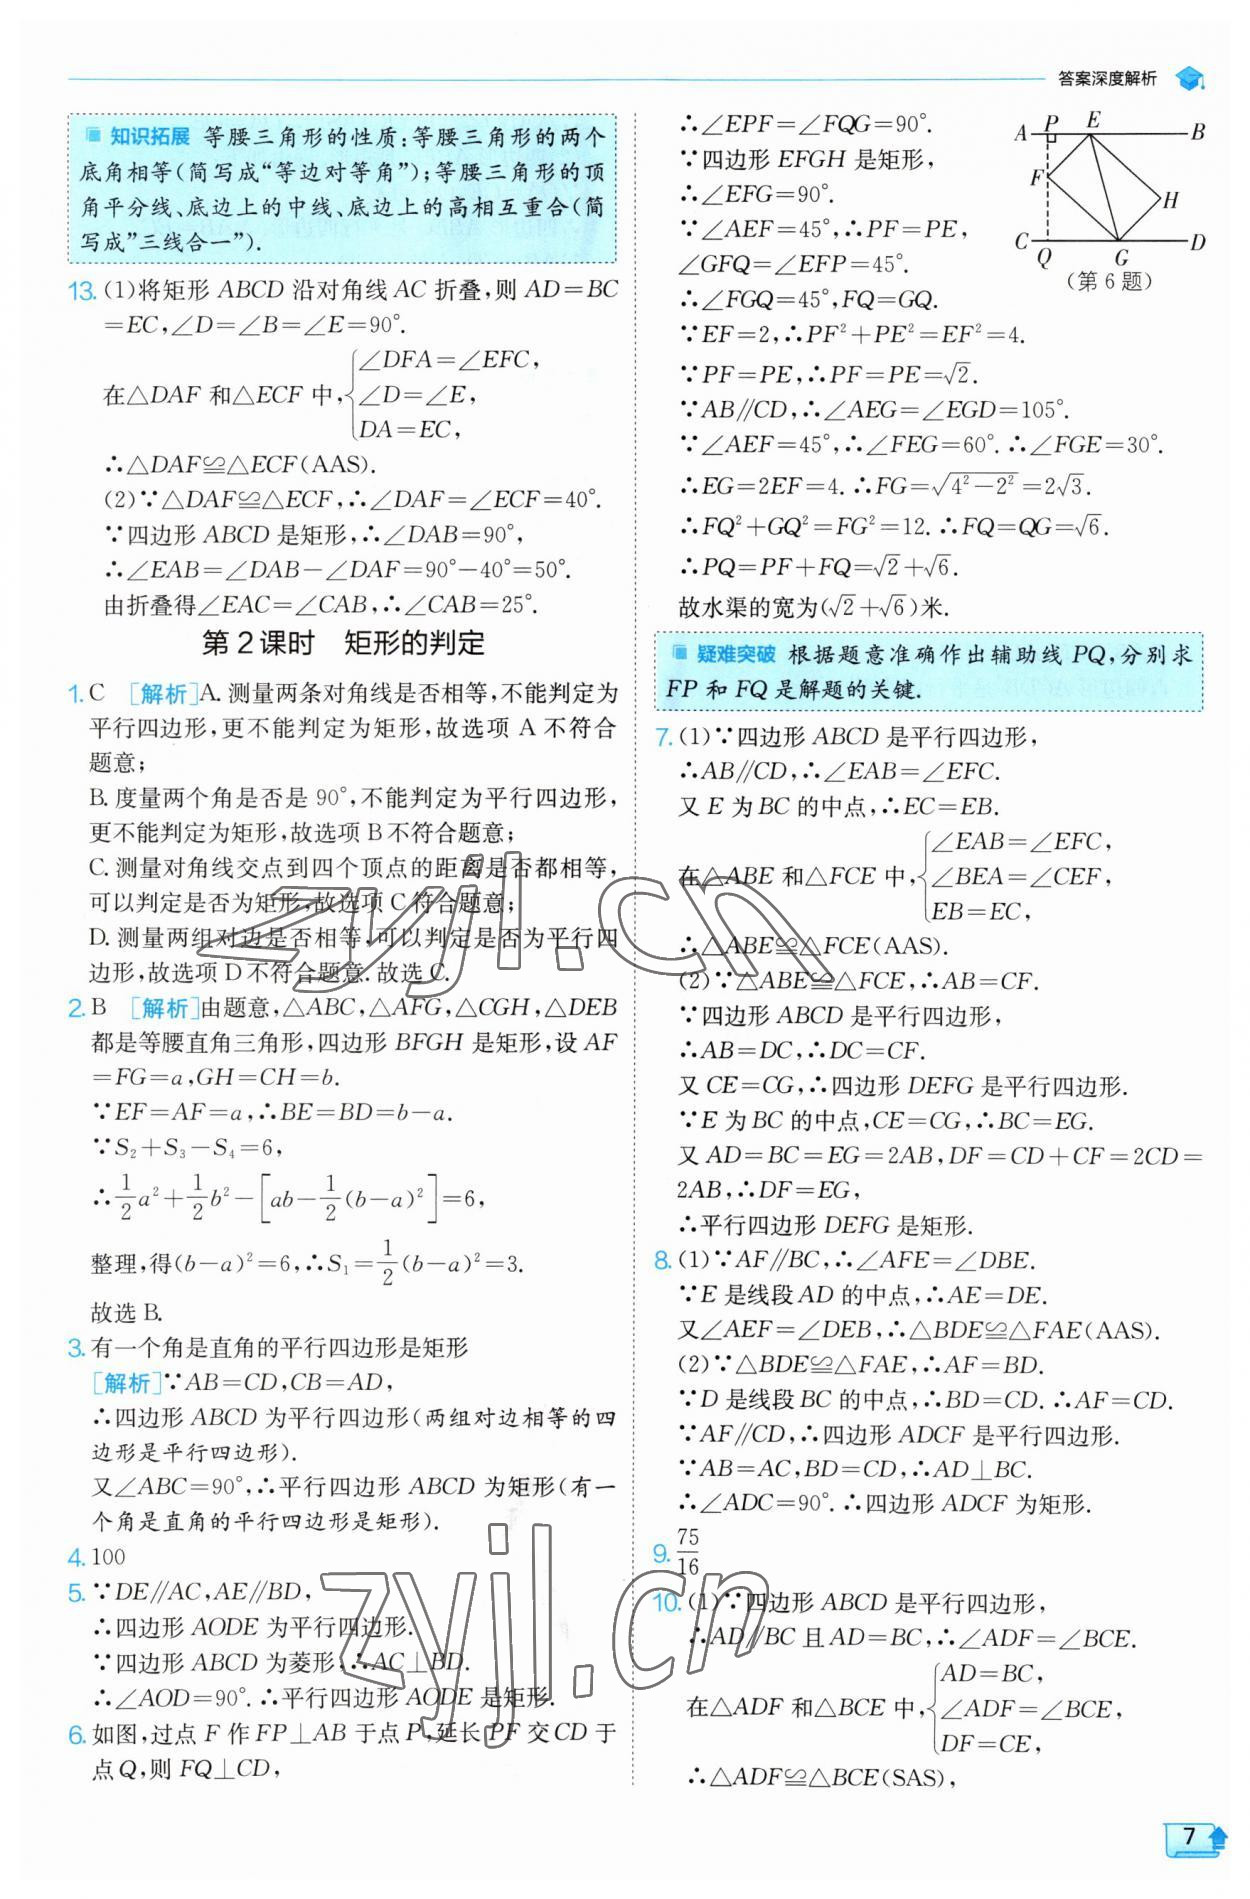 答案深度解析
知识拓展 等腰三角形的性质:等腰三角形的两个
底角相等(简写成“等边对等角”);等腰三角形的顶
角平分线、底边上的中线、底边上的高相互重合(简
写成”三线合一”).
13. (1)将矩形 ABCD 沿对角线 AC 折叠,则 AD=BC
=EC,∠D=∠B=∠E=90°.
在△DAF 和△ECF 中,{∠DFA=∠EFC,
∠D=∠E,
DA=EC,
∴△DAF≌△ECF(AAS).
(2)∵△DAF≌△ECF,∴∠DAF=∠ECF=40°.
∵四边形 ABCD 是矩形,∴∠DAB=90°,
∴∠EAB=∠DAB-∠DAF=90°-40°=50°.
由折叠得∠EAC=∠CAB,∴∠CAB=25°.
第 2 课时 矩形的判定
1. C [解析]A. 测量两条对角线是否相等,不能判定为
平行四边形,更不能判定为矩形,故选项 A 不符合
题意;
B. 度量两个角是否是 90°,不能判定为平行四边形,
更不能判定为矩形,故选项 B 不符合题意;
C. 测量对角线交点到四个顶点的距离是否都相等,
可以判定是否为矩形,故选项 C 符合题意;
D. 测量两组对边是否相等,可以判定是否为平行四
边形,故选项 D 不符合题意.故选 C.
2. B [解析]由题意,△ABC,△AFG,△CGH,△DEB
都是等腰直角三角形,四边形 BFGH 是矩形,设 AF
=FG=a,GH=CH=b.
∵EF=AF=a,∴BE=BD=b-a.
∵S₂+S₃-S₄=6,
∴1/2a²+1/2b²-[ab-1/2(b-a)²]=6,
整理,得(b-a)²=6,∴S₁=1/2(b-a)²=3.
故选 B.
3. 有一个角是直角的平行四边形是矩形
[解析]∵AB=CD,CB=AD,
∴四边形 ABCD 为平行四边形(两组对边相等的四
边形是平行四边形).
又∠ABC=90°,∴平行四边形 ABCD 为矩形(有一
个角是直角的平行四边形是矩形).
4. 100
5. ∵DE∥AC,AE∥BD,
∴四边形 AODE 为平行四边形.
∵四边形 ABCD 为菱形,∴AC⊥BD.
∴∠AOD=90°.∴平行四边形 AODE 是矩形.
6. 如图,过点 F 作 FP⊥AB 于点 P,延长 PF 交 CD 于
点 Q,则 FQ⊥CD,
∴∠EPF=∠FQG=90°.
∵四边形 EFGH 是矩形,
∴∠EFG=90°.
∵∠AEF=45°,∴PF=PE,
∠GFQ=∠EFP=45°.
∴∠FGQ=45°,FQ=GQ.
A P E B
F H
C Q G D
(第 6 题)
∵EF=2,∴PF²+PE²=EF²=4.
∵PF=PE,∴PF=PE=√2.
∵AB∥CD,∴∠AEG=∠EGD=105°.
∵∠AEF=45°,∴∠FEG=60°.∴∠FGE=30°.
∴EG=2EF=4.∴FG=√(4²-2²)=2√3.
∴FQ²+GQ²=FG²=12.∴FQ=QG=√6.
∴PQ=PF+FQ=√2+√6.
故水渠的宽为(√2+√6)米.
疑难突破 根据题意准确作出辅助线 PQ,分别求
FP 和 FQ 是解题的关键.
7. (1)∵四边形 ABCD 是平行四边形,
∴AB∥CD,∴∠EAB=∠EFC.
又 E 为 BC 的中点,∴EC=EB.
在△ABE 和△FCE 中,{∠EAB=∠EFC,
∠BEA=∠CEF,
EB=EC,
∴△ABE≌△FCE(AAS).
(2)∵△ABE≌△FCE,∴AB=CF.
∵四边形 ABCD 是平行四边形,
∴AB=DC,∴DC=CF.
又 CE=CG,∴四边形 DEFG 是平行四边形.
∵E 为 BC 的中点,CE=CG,∴BC=EG.
又 AD=BC=EG=2AB,DF=CD+CF=2CD=
2AB,∴DF=EG,
∴平行四边形 DEFG 是矩形.
8. (1)∵AF∥BC,∴∠AFE=∠DBE.
∵E 是线段 AD 的中点,∴AE=DE.
又∠AEF=∠DEB,∴△BDE≌△FAE(AAS).
(2)∵△BDE≌△FAE,∴AF=BD.
∵D 是线段 BC 的中点,∴BD=CD.∴AF=CD.
∵AF∥CD,∴四边形 ADCF 是平行四边形.
∵AB=AC,BD=CD,∴AD⊥BC.
∴∠ADC=90°.∴四边形 ADCF 为矩形.
9. 75/16
10. (1)∵四边形 ABCD 是平行四边形,
∴AD∥BC 且 AD=BC,∴∠ADF=∠BCE.
在△ADF 和△BCE 中,{AD=BC,
∠ADF=∠BCE,
DF=CE,
∴△ADF≌△BCE(SAS),
zyjl.cn
zyjl.cn
7